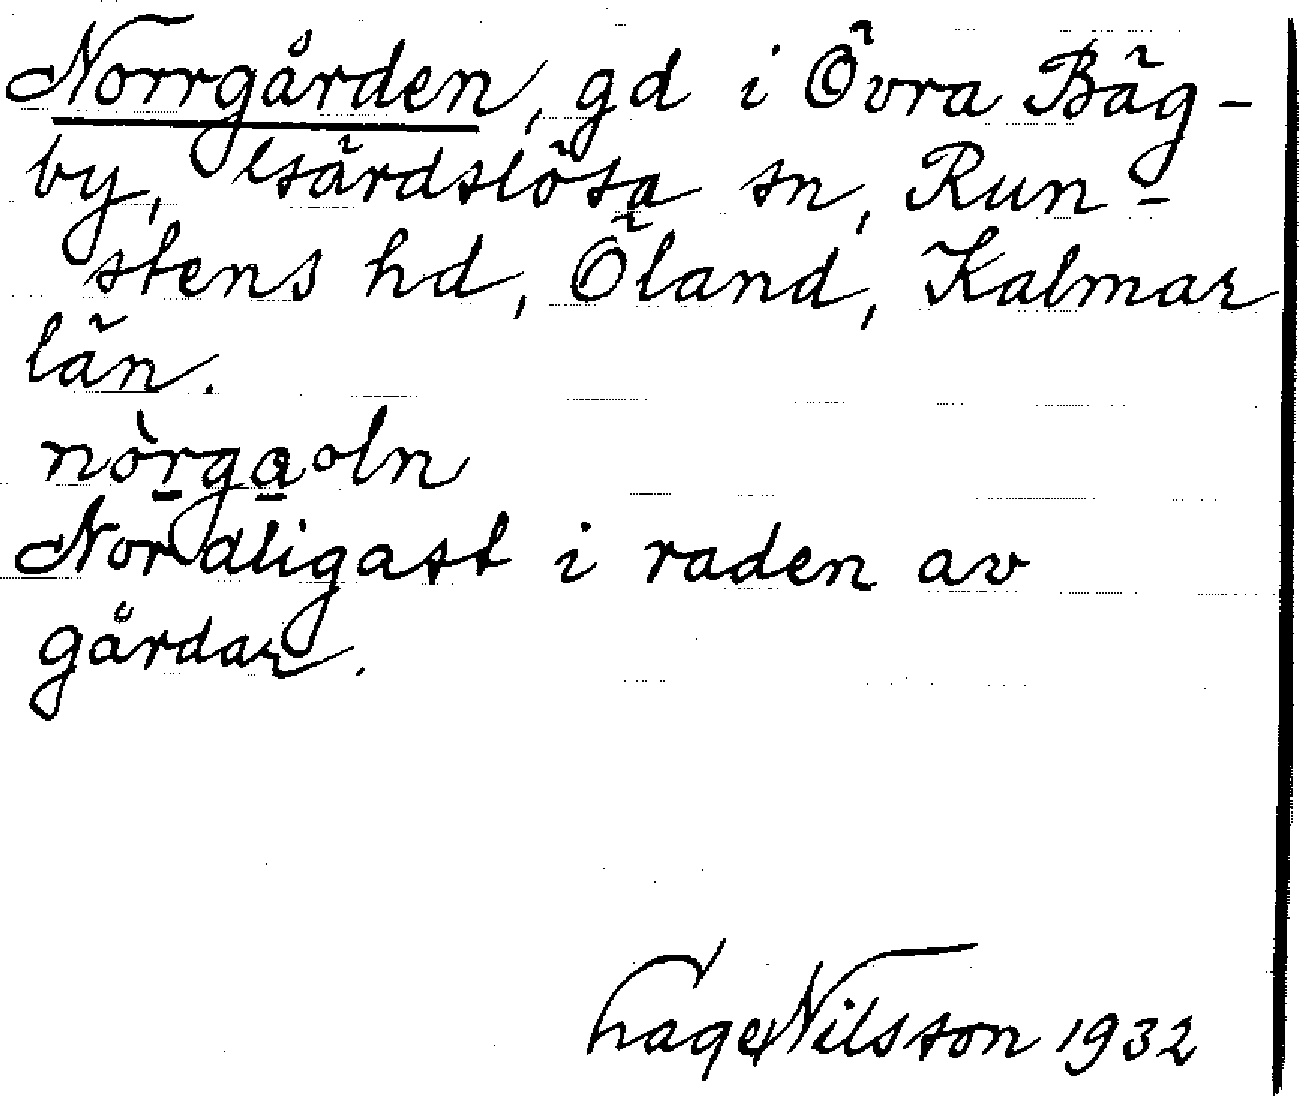 Norrgården, gd i Övra Bäg-
by, Gärdslösa sn, Run-
stens hd, Öland, Kalmar
län.
nòrgaoln
Nordligast i raden av
gårdar.
Tage Nilsson 1932